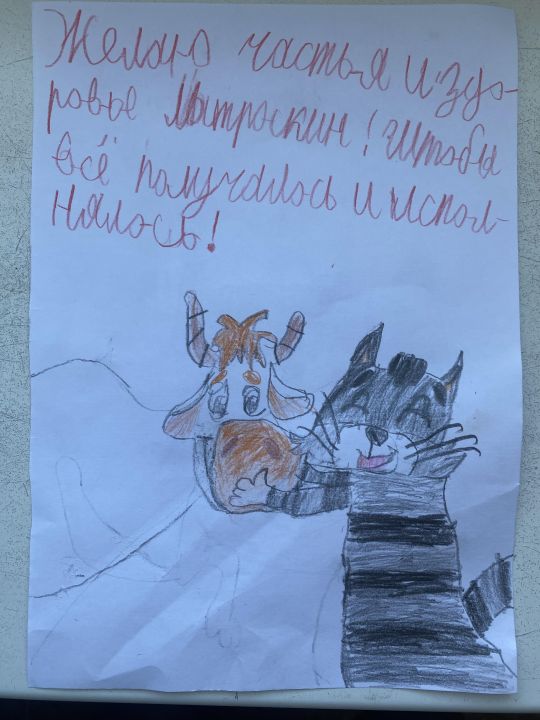 Желаю частья и здо-
ровье Мытроскин! Штобы
всё получалось и испол-
нялось!